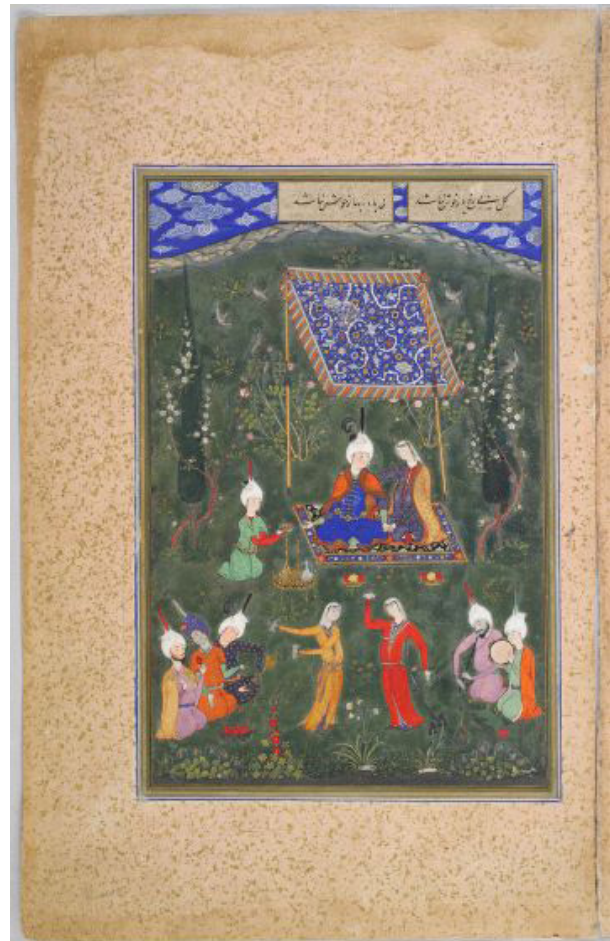 گل بی رخ یار خوش نباشد
بی باده بهار خوش نباشد